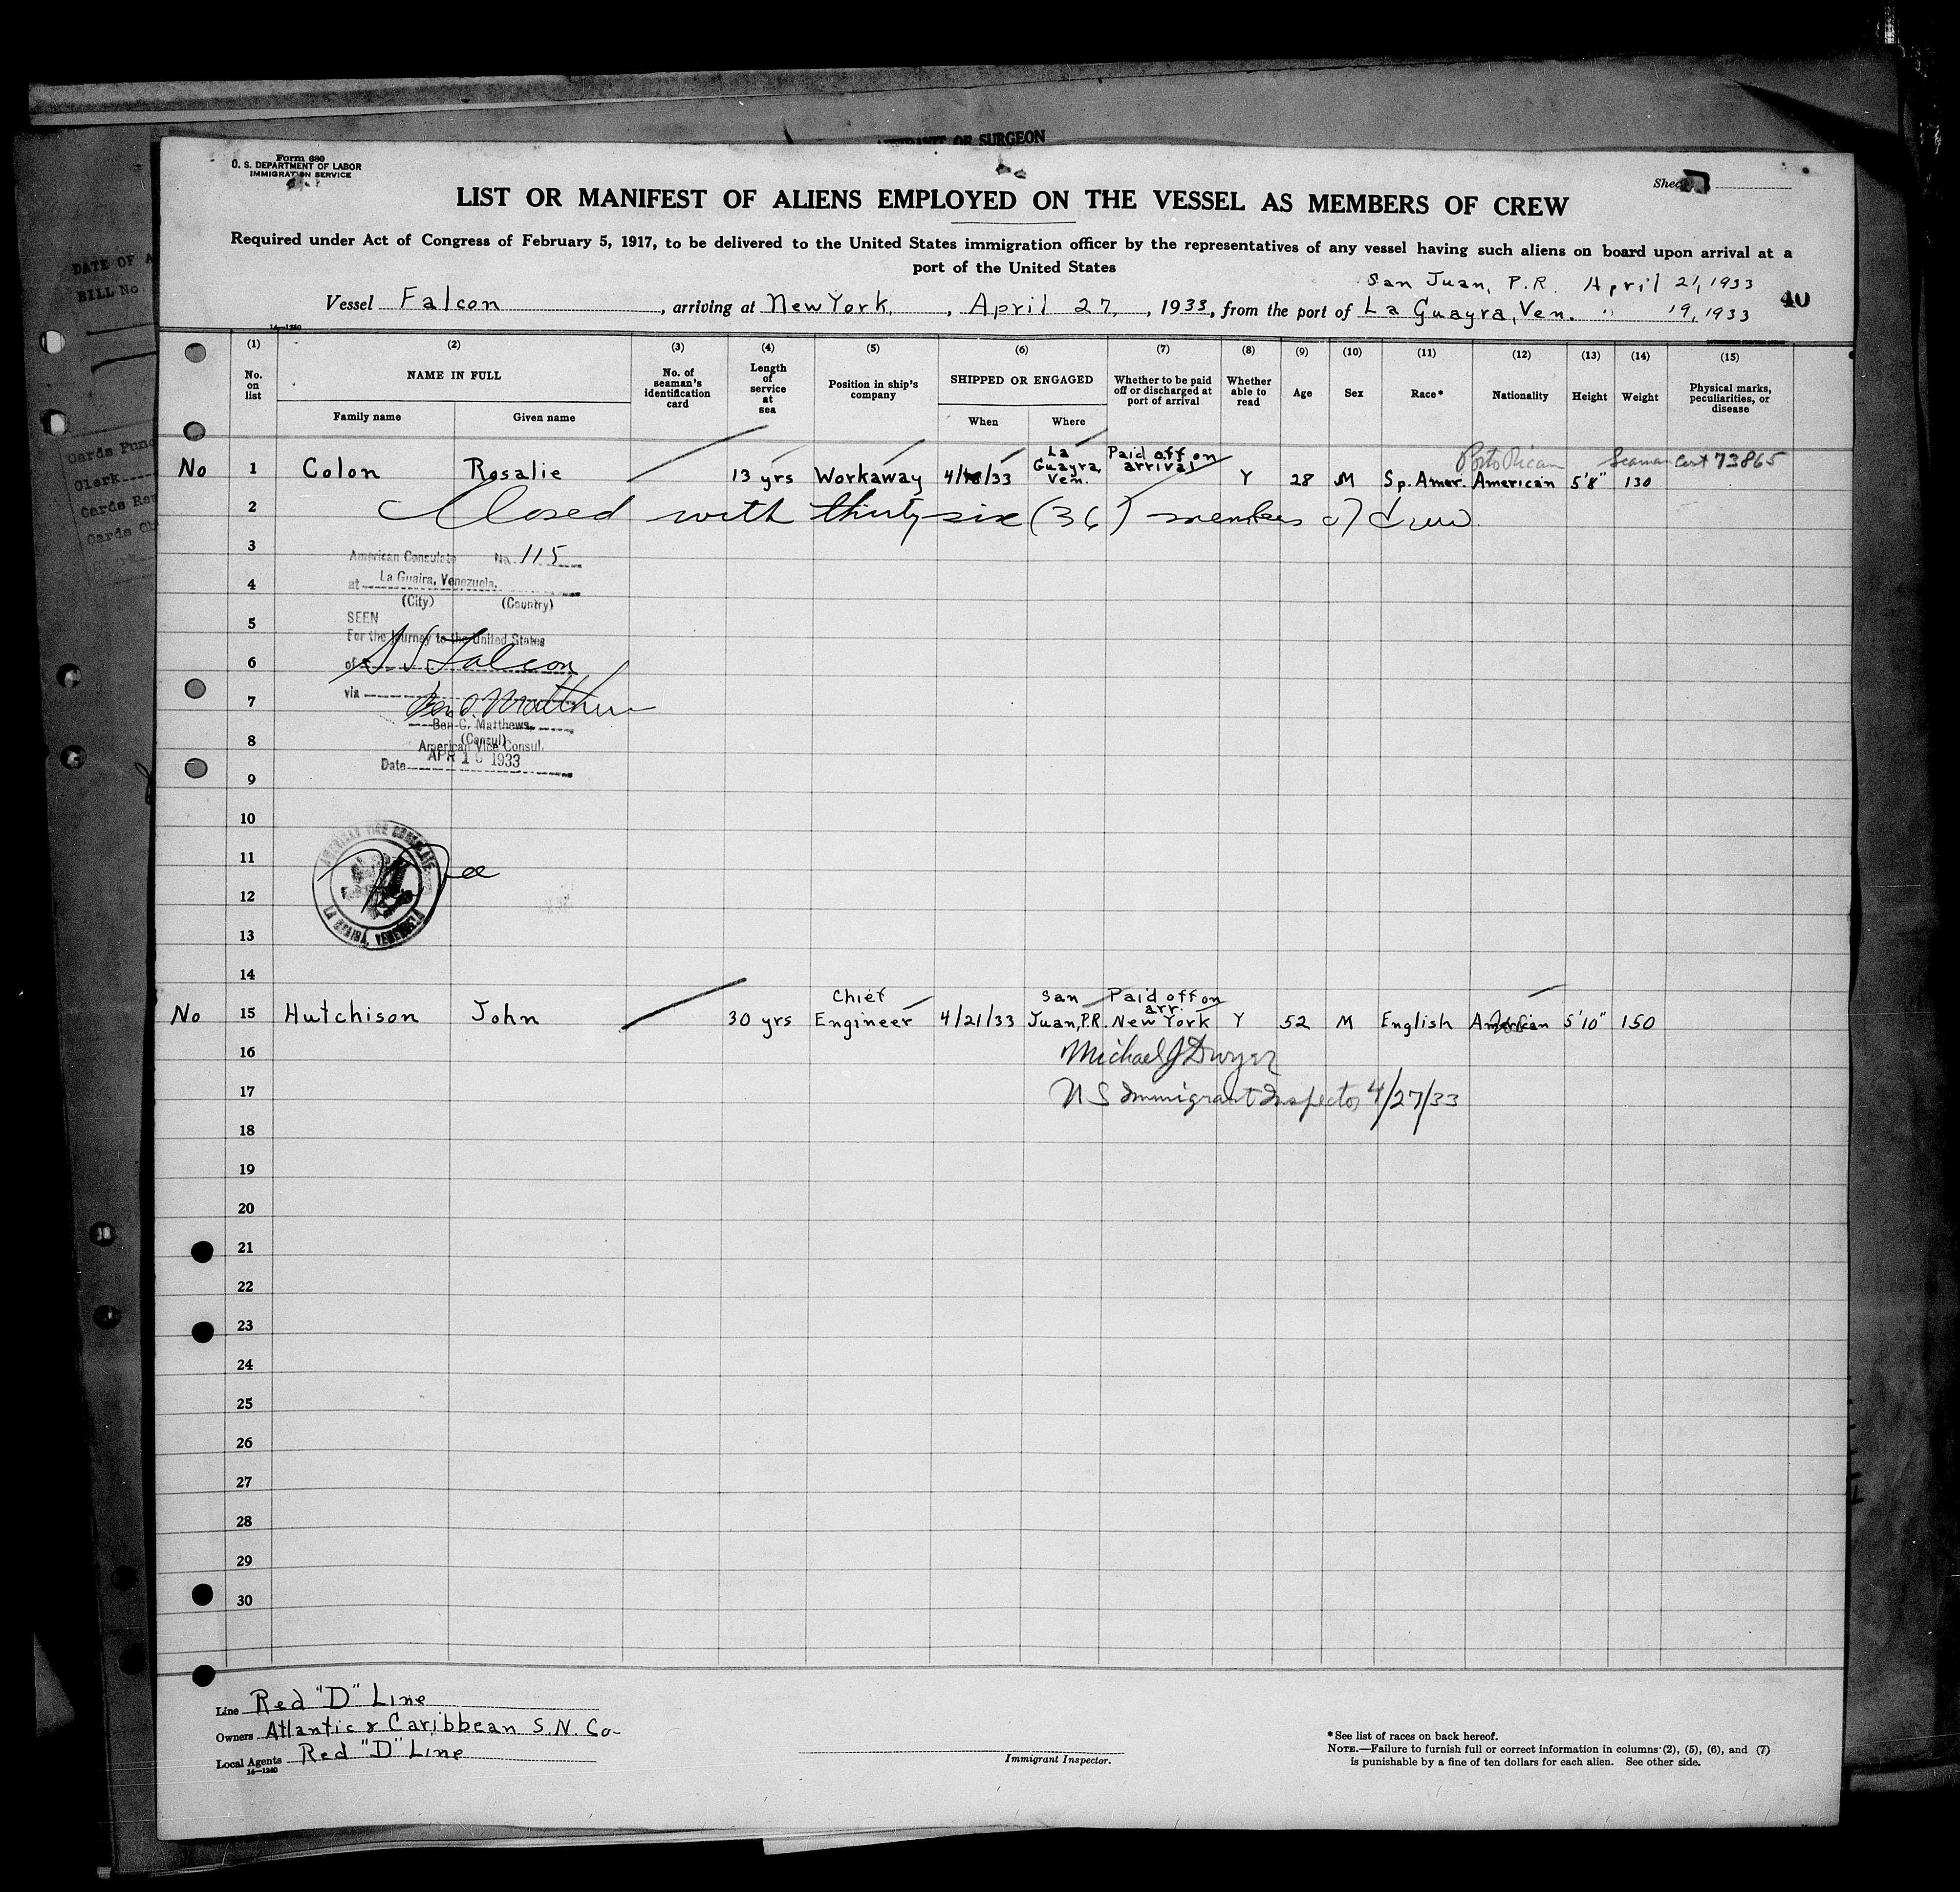 OF SURGEON
Form 680
U. S. DEPARTMENT OF LABOR
IMMIGRATION SERVICE
Sheet
LIST OR MANIFEST OF ALIENS EMPLOYED ON THE VESSEL AS MEMBERS OF CREW
Required under Act of Congress of February 5, 1917, to be delivered to the United States immigration officer by the representatives of any vessel having such aliens on board upon arrival at a
port of the United States
San Juan, P.R. April 21, 1933
Vessel Falcon, arriving at New York, April 27, 1933, from the port of La Guayra, Ven. " 19, 1933
40
14—1240
(1) (2) (3) (4) (5) (6) (7) (8) (9) (10) (11) (12) (13) (14) (15)
No. on list
NAME IN FULL
Family name
Given name
No. of seaman's identification card
Length of service at sea
Position in ship's company
SHIPPED OR ENGAGED
When
Where
Whether to be paid off or discharged at port of arrival
Whether able to read
Age
Sex
Race*
Nationality
Height
Weight
Physical marks, peculiarities, or disease
Porto Rican Seaman Cert 73865
No 1 Colon Rosalie 13 yrs Workaway 4/18/33 La Guayra, Ven. Paid off on arrival Y 28 M Sp. Amer. American 5'8" 130
2 Closed with thirty six (36) members of crew
3
American Consulate No. 115
4
at La Guaira, Venezuela.
(City) (Country)
5
SEEN
For the journey to the United States
6
of S S Falcon
7
via
Ben C. Matthews
Ben C. Matthews,
8
(Consul)
American Vice Consul.
Date APR 1 1933
9
10
11
AMERICAN VICE CONSULATE
LA GUAIRA, VENEZUELA
12
13
14
No 15 Hutchison John 30 yrs Chief Engineer 4/21/33 San Juan, P.R. Paid off on arr. New York Y 52 M English American 5'10" 150
16 Michael J Dwyer
17 U S Immigrant Inspector 4/27/33
18
19
20
21
22
23
24
25
26
27
28
29
30
Line Red "D" Line
Owners Atlantic & Caribbean S. N. Co.
Local Agents Red "D" Line
14—1240
Immigrant Inspector.
* See list of races on back hereof.
NOTE.—Failure to furnish full or correct information in columns (2), (5), (6), and (7)
is punishable by a fine of ten dollars for each alien. See other side.